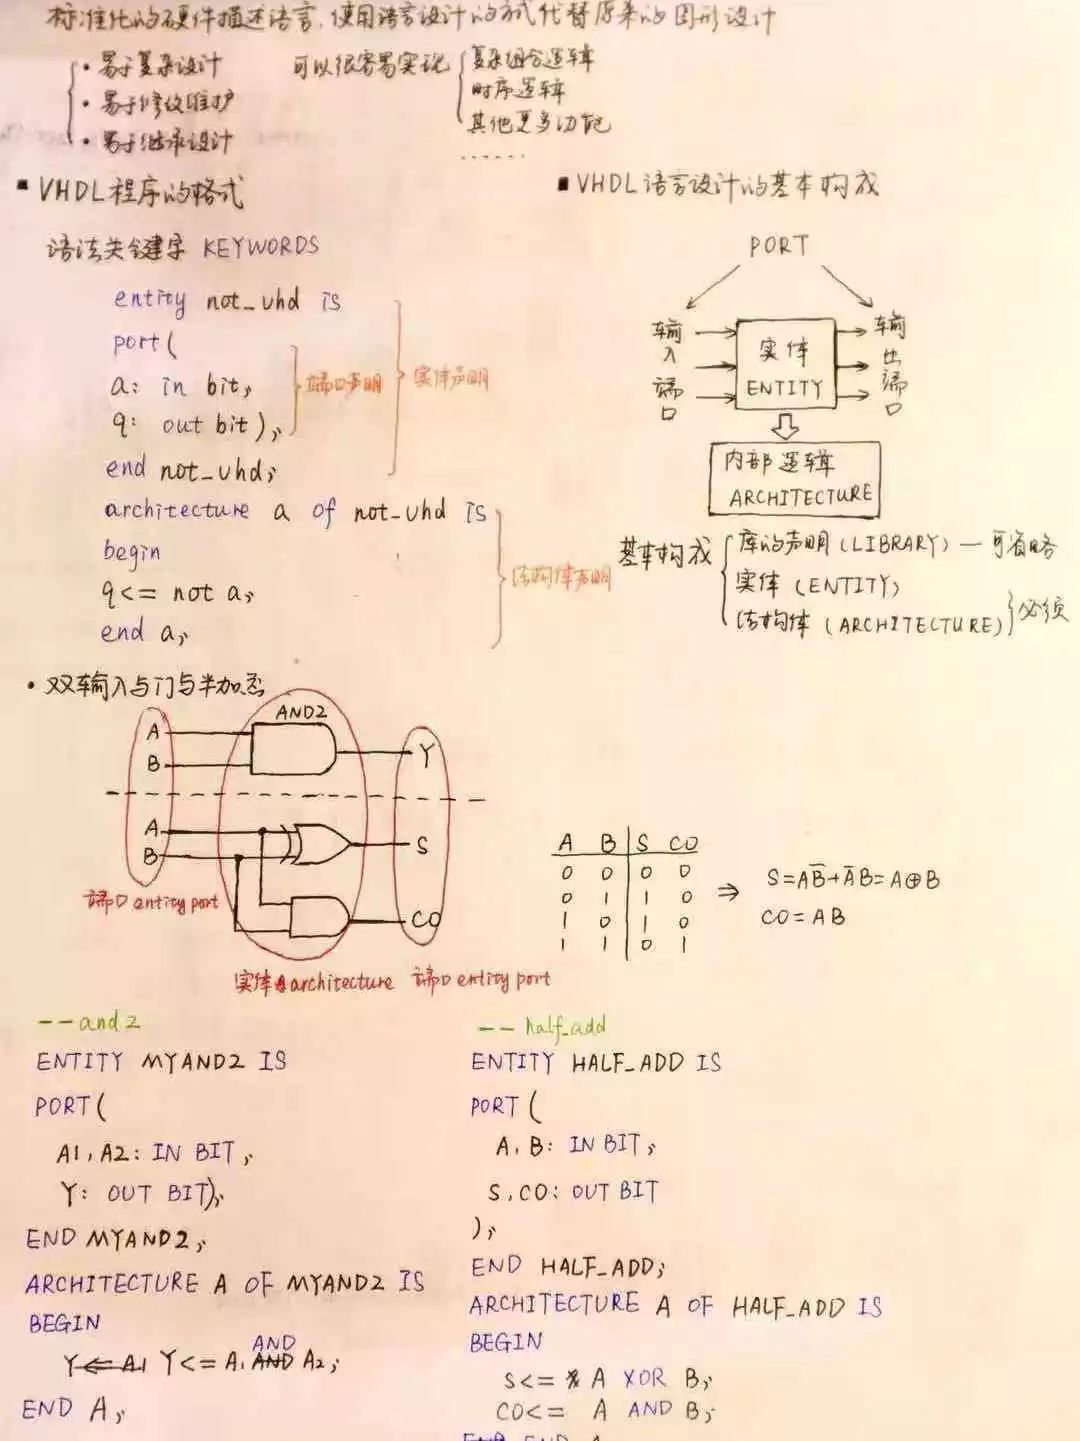 标准化的硬件描述语言,使用语言设计的方式代替原来的图形设计
· 易于复杂设计
· 易于修改维护
· 易于继承设计
可以很容易实现
复杂组合逻辑
时序逻辑
其他更多功能
......
▪ VHDL程序的格式
语法关键字 KEYWORDS
entity not_vhd is
port(
a: in bit;
q: out bit);
end not_vhd;
端口声明
实体声明
architecture a of not_vhd is
begin
q<= not a;
end a;
结构体声明
▪ VHDL语言设计的基本构成
PORT
输入端口
实体
ENTITY
输出端口
内部逻辑
ARCHITECTURE
基本构成
库的声明(LIBRARY)—可省略
实体(ENTITY)
结构体(ARCHITECTURE)
必须
· 双输入与门与半加器
AND2
A
B
Y
A
B
S
CO
端口entity port
实体architecture
端口entity port
A B S CO
0 0 0 0
0 1 1 0
1 0 1 0
1 1 0 1
⇒
S=AB̅+A̅B=A⊕B
CO=AB
--and2
ENTITY MYAND2 IS
PORT(
A1,A2: IN BIT;
Y: OUT BIT);
END MYAND2;
ARCHITECTURE A OF MYAND2 IS
BEGIN
Y<=A1 AND A2;
END A;
-- half_add
ENTITY HALF_ADD IS
PORT(
A,B: IN BIT;
S,CO: OUT BIT
);
END HALF_ADD;
ARCHITECTURE A OF HALF_ADD IS
BEGIN
S<= A XOR B;
CO<= A AND B;
END A